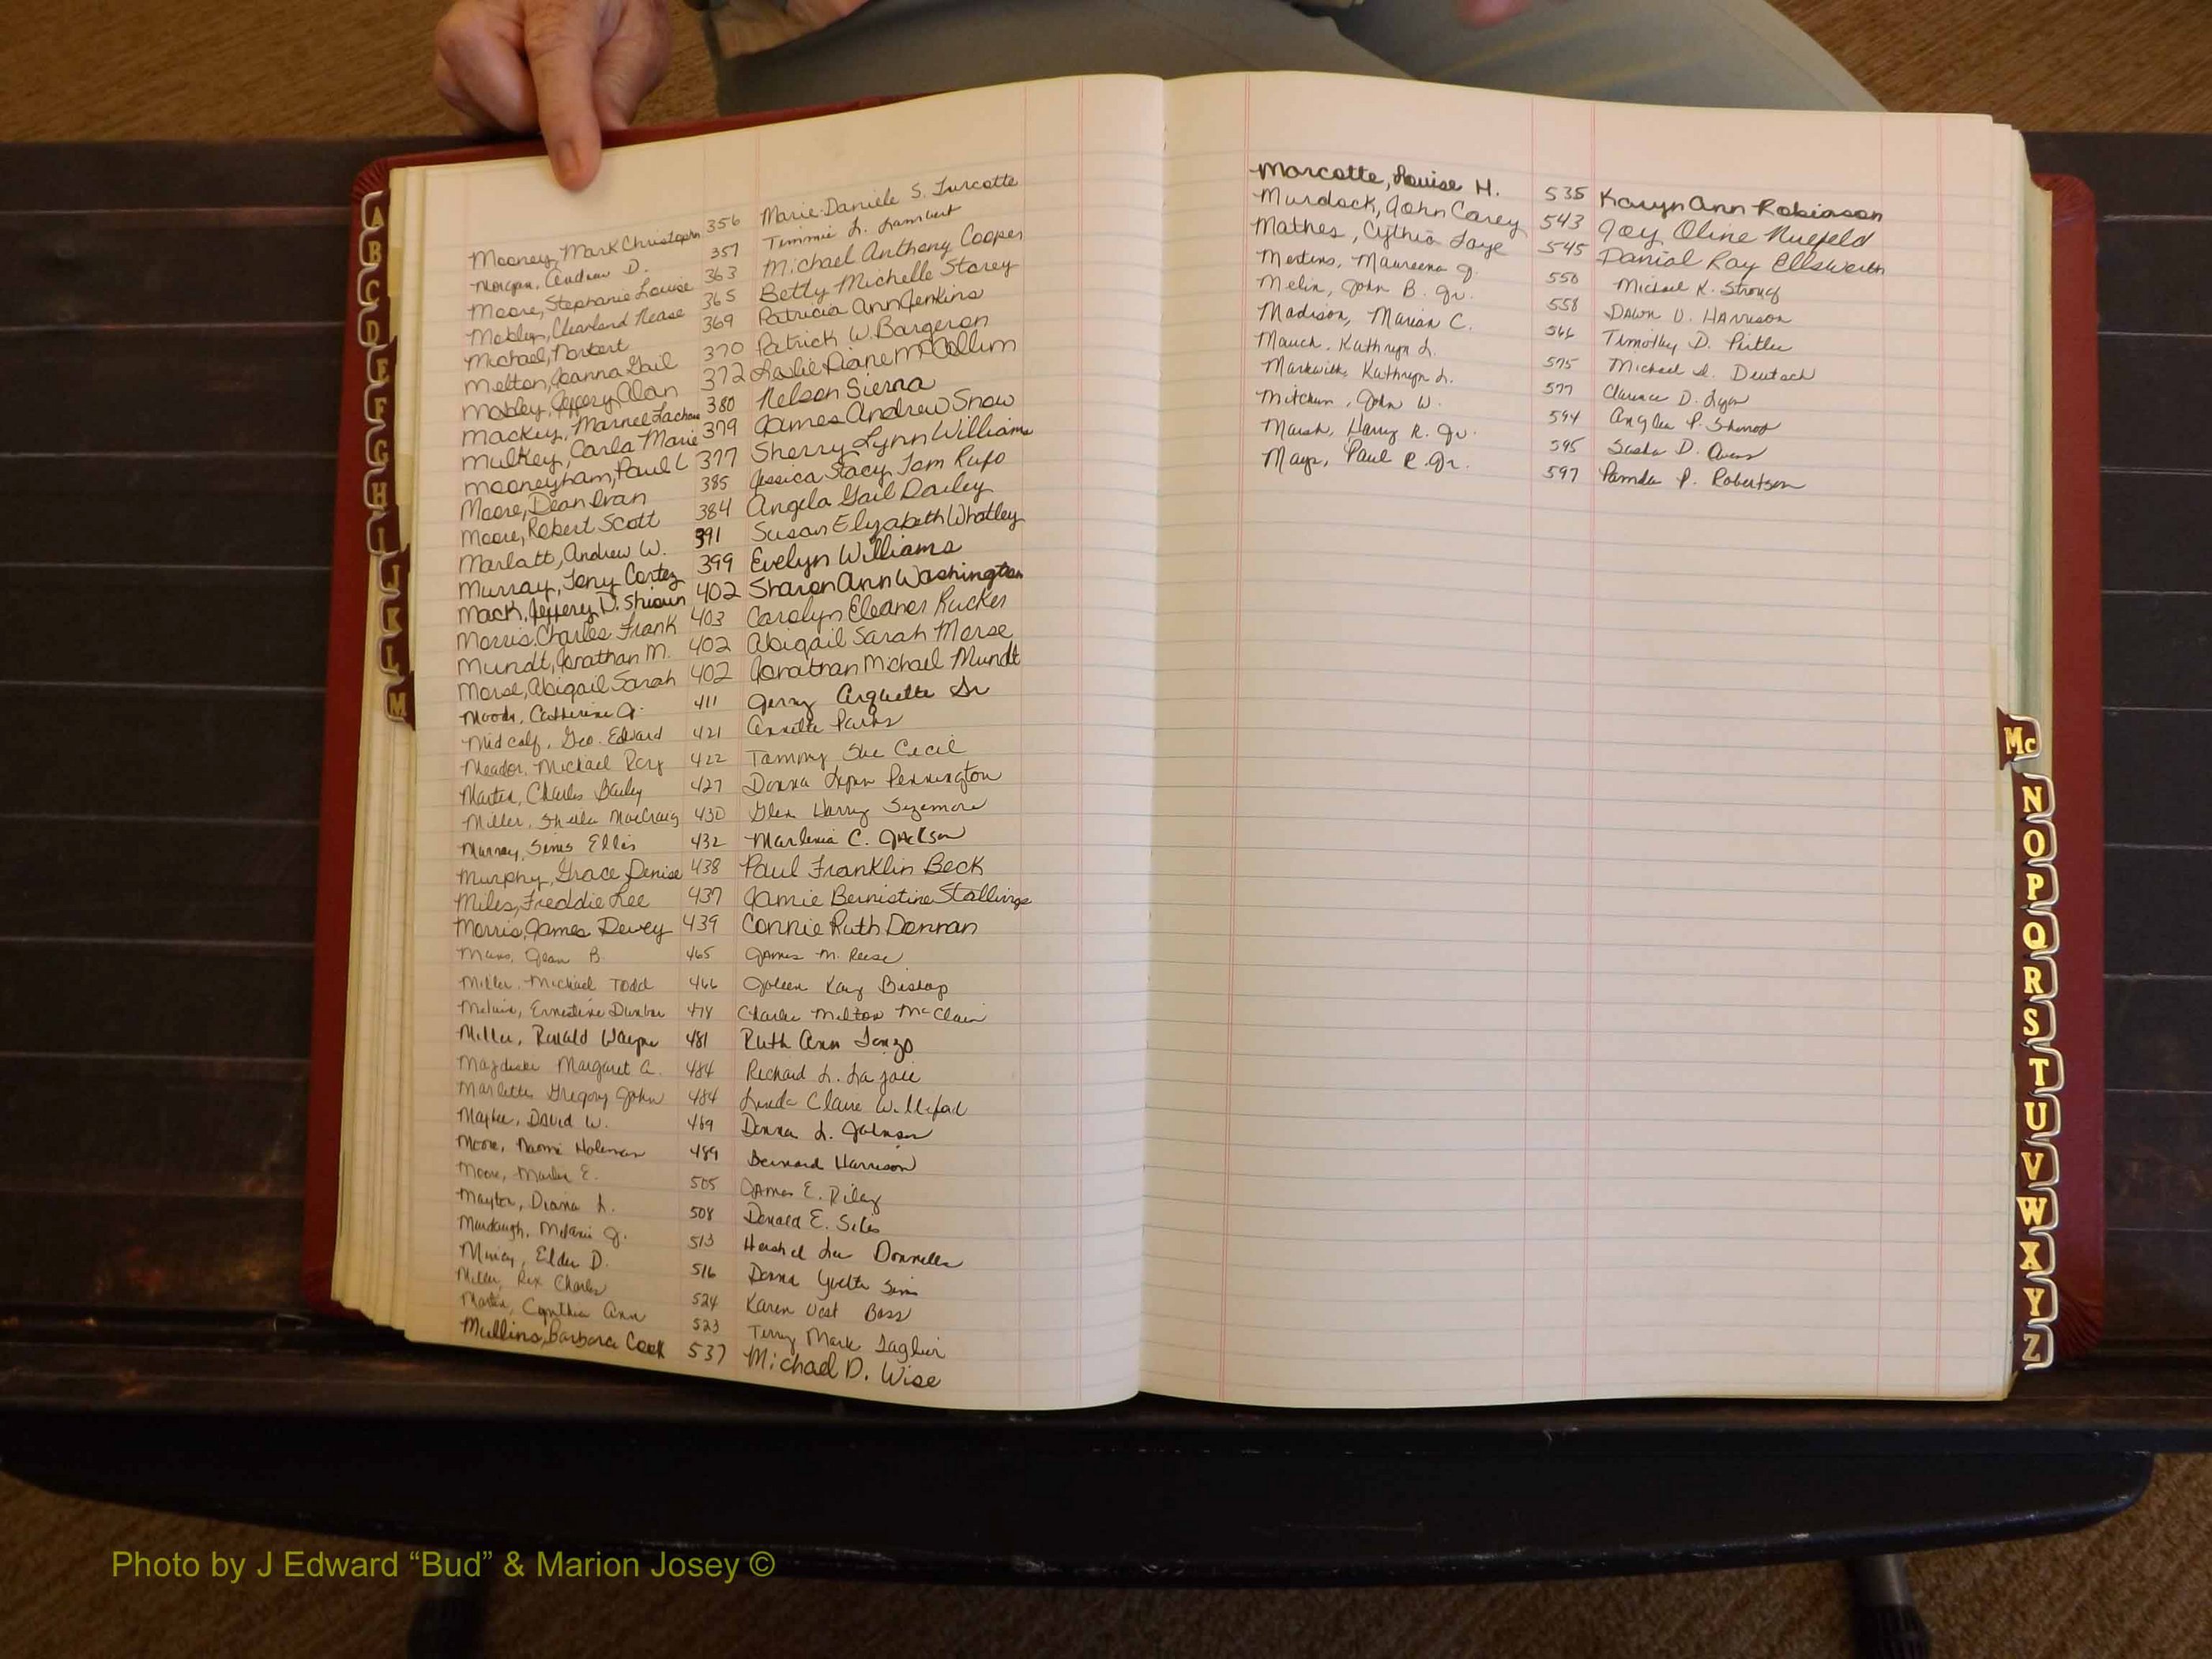 Mooney, Mark Christophr 356 Marie-Daniele S. Turcotte
Morgan, Andrew D. 357 Timmie L. Lambert
Moore, Stephanie Louise 363 Michael Anthony Cooper
Mobley, Clearland Nease 365 Betty Michelle Storey
Michael, Norbert 369 Patricia Ann Jenkins
Melton, Joanna Gail 370 Patrick W. Bargeron
Mobley, Jeffery Alan 372 Leslie Diane McCollum
Mackey, Marnee 380 Nelson Sierra
Mulkey, Carla Marie 379 James Andrew Snow
Mooneyham, Paul L 377 Sherry Lynn Williams
Moore, Dean Ivan 385 Jessica Stacy Tom Rufo
Moore, Robert Scott 384 Angela Gail Dailey
Marlatt, Andrew W. 391 Susan Elizabeth Whatley
Murray, Tony Cortez 399 Evelyn Williams
Mack, Jeffery D. Shioun 402 Sharon Ann Washington
Morris, Charles Frank 403 Carolyn Eleaner Rucker
Mundt, Jonathan M. 402 Abigail Sarah Morse
Morse, Abigail Sarah 402 Jonathan Michael Mundt
Moody, Catherine J. 411 Jerry Arquette Sr
Midcalf, Geo. Edward 421 Annette Parks
Meador, Michael Ray 422 Tammy Sue Cecil
Martin, Charles Bailey 427 Donna Lynn Pennington
Miller, Sheila MacCraig 430 Glen Harry Sizemore
Murray, Sims Ellis 432 Marlenia C. Jackson
Murphy, Grace Denise 438 Paul Franklin Beck
Miles, Freddie Lee 437 Jamie Bernistine Stallings
Morris, James Dewey 439 Connie Ruth Dennan
Jean B. 465 James M. Reese
Miller, Michael Todd 466 Joleen Kay Bishop
Ernestine Dunbar 478 Charlie Milton McClain
Miller, Ronald Wayne 481 Ruth Ann
Margaret A. 484 Richard L. LaJoie
Marlette Gregory John 484 Linda Claire Williford
Maybee, David W. 469 Donna L. Johnson
Moore, Naomi Holeman 489 Bernard Harrison
Moore, Marlee E. 505 James E. Riley
Maytox, Diana L. 508 Donald E. Siles
Murdaugh, Melanie J. 513 Hershel Lee Donnelly
Mincey, Elder D. 516 Donna Yvette Sims
Miller, Rex Charles 524 Karen Vest Bass
Martin, Cynthia Ann 523 Terry Mark
Mullins, Barbara Cook 537 Michael D. Wise
Marcotte, Louise H. 535 Karyn Ann Robinson
Murdock, John Carey 543 Joy Oline Nuefeld
Mathes, Cythia Faye 545 Danial Ray Ellsworth
Mertins, Maureena J. 550 Michael K. Stroug
Melin, John B. Jr. 558 Dawn V. Harrison
Madison, Marian C. 566 Timothy D.
Mauch, Kathryn L. 575 Michael A. Deutsch
Kathryn L. 577 Clarence D. Lyon
Mitchum, John W. 594 Angela P.
Marsh, Harry R. Jr. 595 Sasha D. Owens
Mays, Paul R. Jr. 597 Pamela P. Robertson
A
B
C
D
E
F
G
H
I
J
K
L
M
Mc
N
O
P
Q
R
S
T
U
V
W
X
Y
Z
Photo by J Edward “Bud” & Marion Josey ©